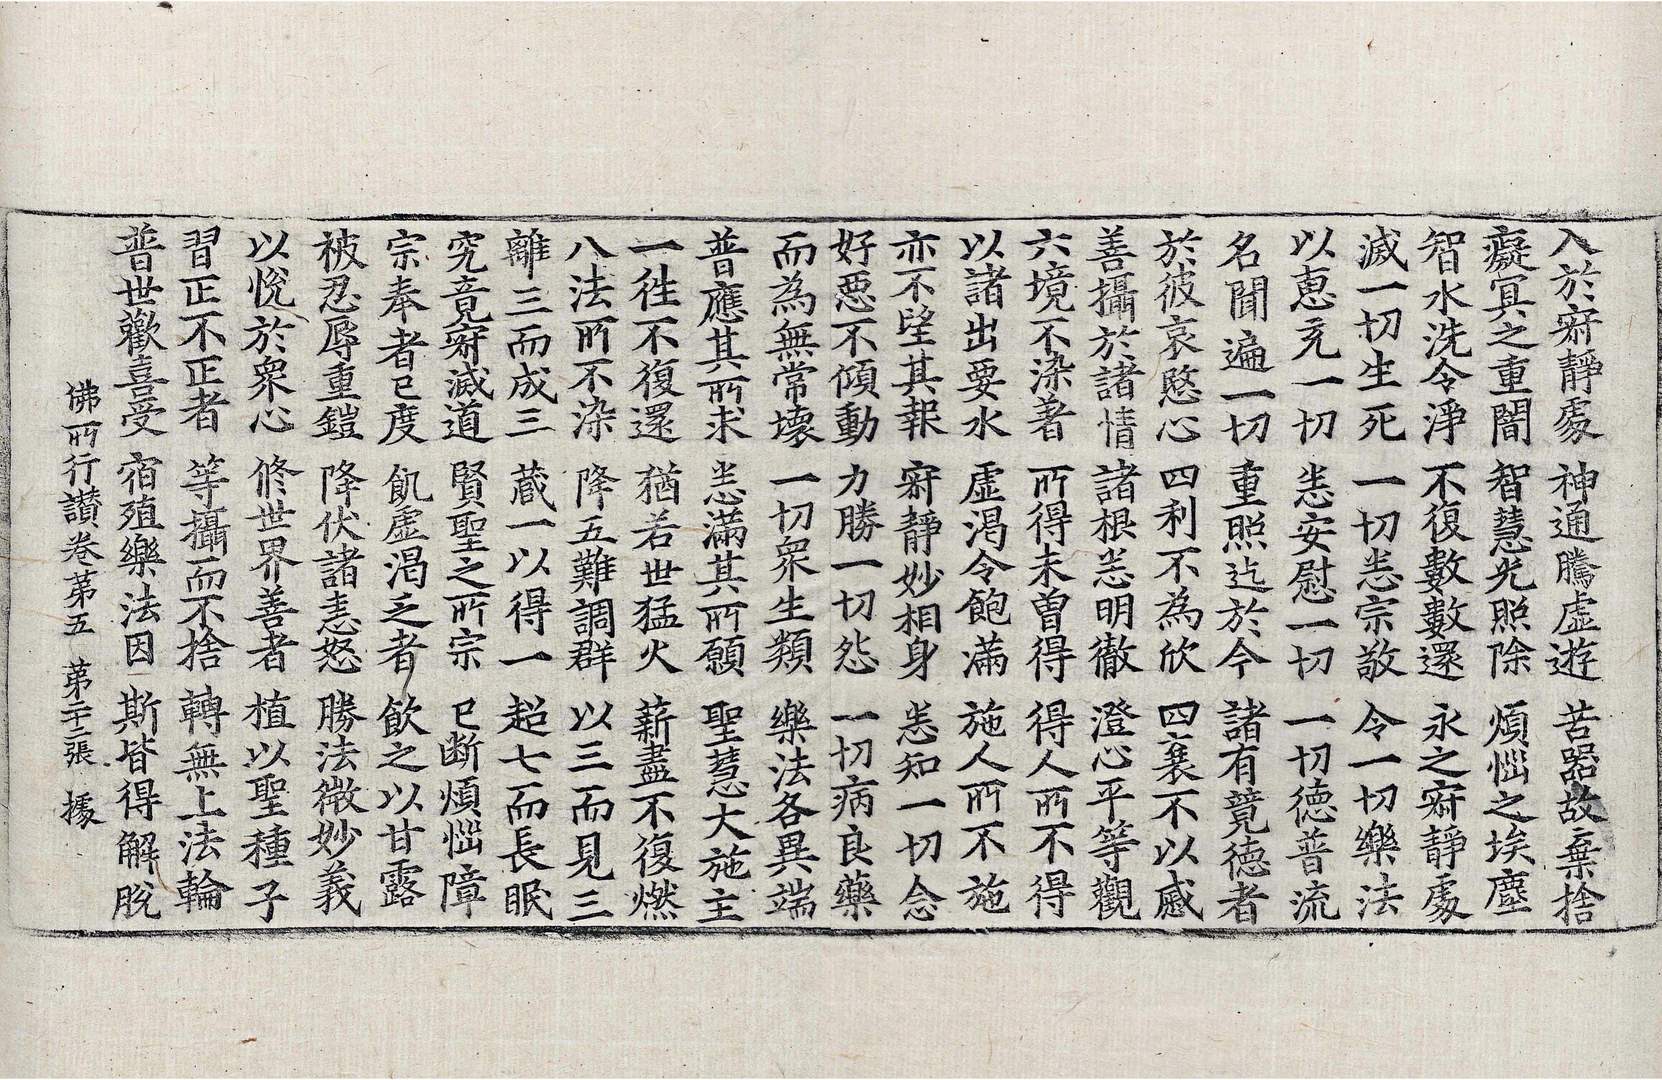 入於寂靜處 神通騰虛遊 苦器故棄捨
癡冥之重闇 智慧光照除 煩惱之埃塵
智水洗令淨 不復數數還 永之寂靜處
滅一切生死 一切悉宗敬 令一切樂法
以惠充一切 悉安慰一切 一切德普流
名聞遍一切 重照迄於今 諸有競德者
於彼哀愍心 四利不為欣 四衰不以慼
善攝於諸情 諸根悉明徹 澄心平等觀
六境不染著 所得未曾得 得人所不得
以諸出要水 虛渴令飽滿 施人所不施
亦不望其報 寂靜妙相身 悉知一切念
好惡不傾動 力勝一切怨 一切病良藥
而為無常壞 一切眾生類 樂法各異端
普應其所求 悉滿其所願 聖慧大施主
一往不復還 猶若世猛火 薪盡不復燃
八法所不染 降五難調群 以三而見三
離三而成三 藏一以得一 超七而長眠
究竟寂滅道 賢聖之所宗 已斷煩惱障
宗奉者已度 飢虛渴乏者 飲之以甘露
被忍辱重鎧 降伏諸恚怒 勝法微妙義
以悅於眾心 修世界善者 植以聖種子
習正不正者 等攝而不捨 轉無上法輪
普世歡喜受 宿殖樂法因 斯皆得解脫
佛所行讚卷第五 第二十二張 據